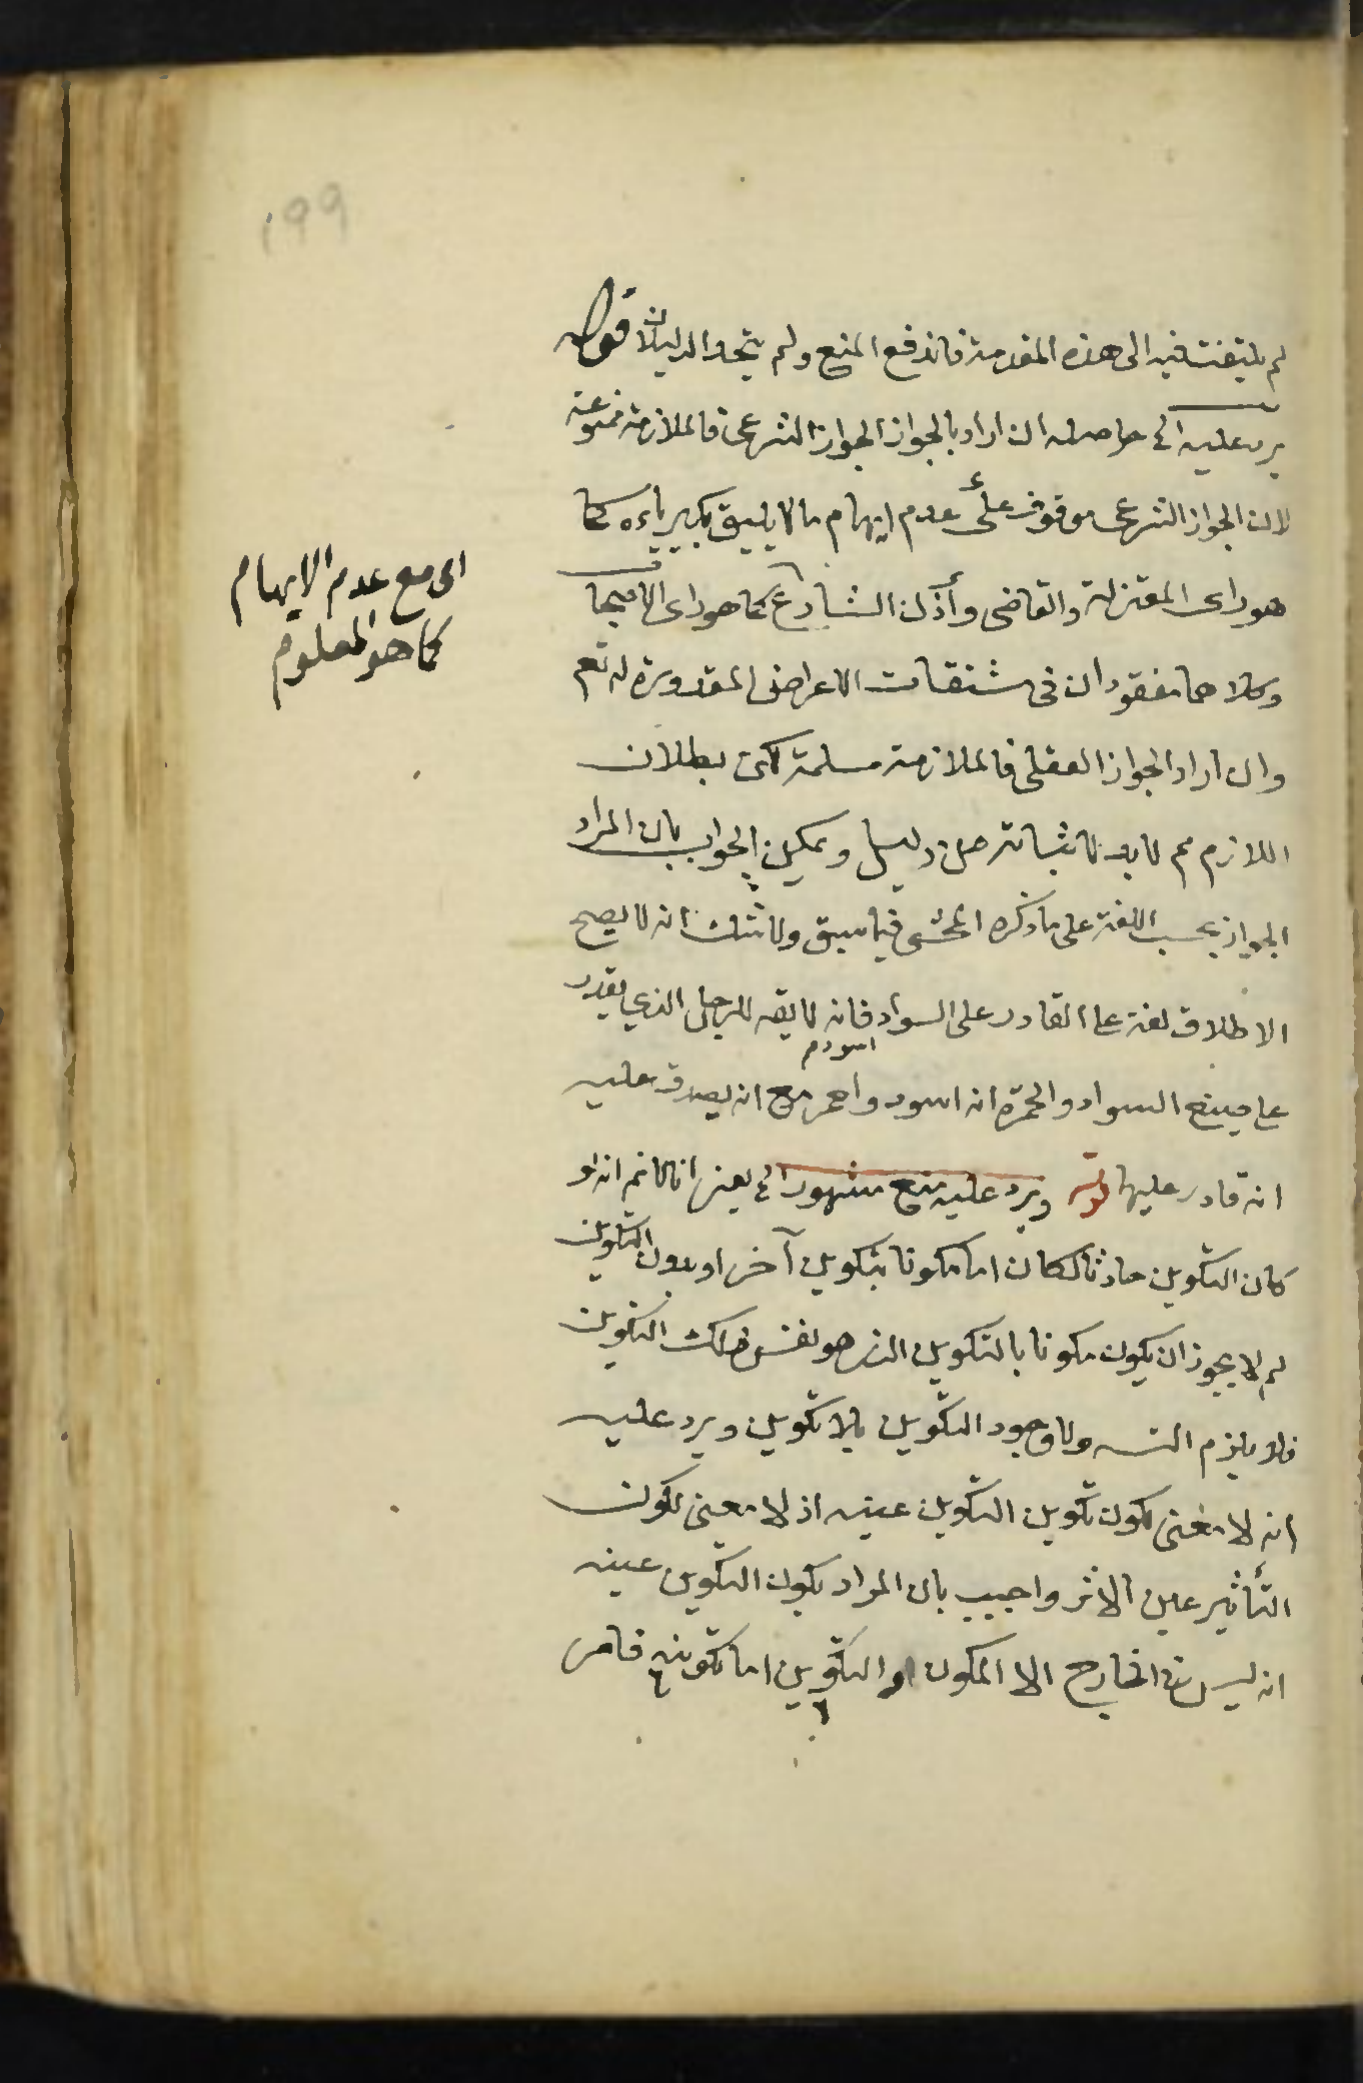 199
لم يلتفت فيه الى هذه المقدمة فاندفع المنع ولم يتحد الدليلان قوله
يرد عليه الخ حاصله ان اراد بالجواز الجواز الشرعى فالملازمة ممنوعة
لان الجواز الشرعى موقوف على عدم ايهام ما لا يليق بكبرياءه كما
هو راى المعتزلة والقاضى وأذن الشارع كما هو راى الاصحاب
وكلاهما مفقودان فى مشتقات الاعراض المقدورة له تع
وان اراد الجواز العقلى فالملازمة مسلمة لكن بطلان
اللازم مم لا بد لاثباته من دليل ويمكن الجواب بان المراد
الجواز بحسب اللغة على ما ذكره المحشى فيما سبق ولا شك انه لا يصح
الاطلاق لغة على القادر على السواد فانه لا يقه للرجل الذي يقدر
اسود م
على صبغ السواد والحمرة انه اسود واحمر مع انه يصدق عليه
انه قادر عليها قوله ويرد عليه منع مشهور الخ يعنى انا لا نم انه لو
كان التكوين حادثا لكان اما مكونا بتكوين آخر او بدون التكوين
لم لا يجوز ان يكون مكونا بالتكوين الذى هو نفس ذلك التكوين
فلا يلزم التسه ولا وجود التكوين بلا تكوين ويرد عليه
انه لا معنى لكون تكوين التكوين عينه اذ لا معنى لكون
التأثير عين الاثر واجيب بان المراد بكون التكوين عينه
انه ليس فى الخارج الا المكون والتكوين اما تكوينه فامر
اى مع عدم الايهام
كما هو المعلوم